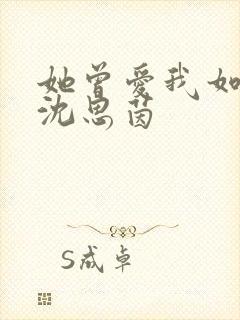 她曾爱我如
沈思茵
S成卓